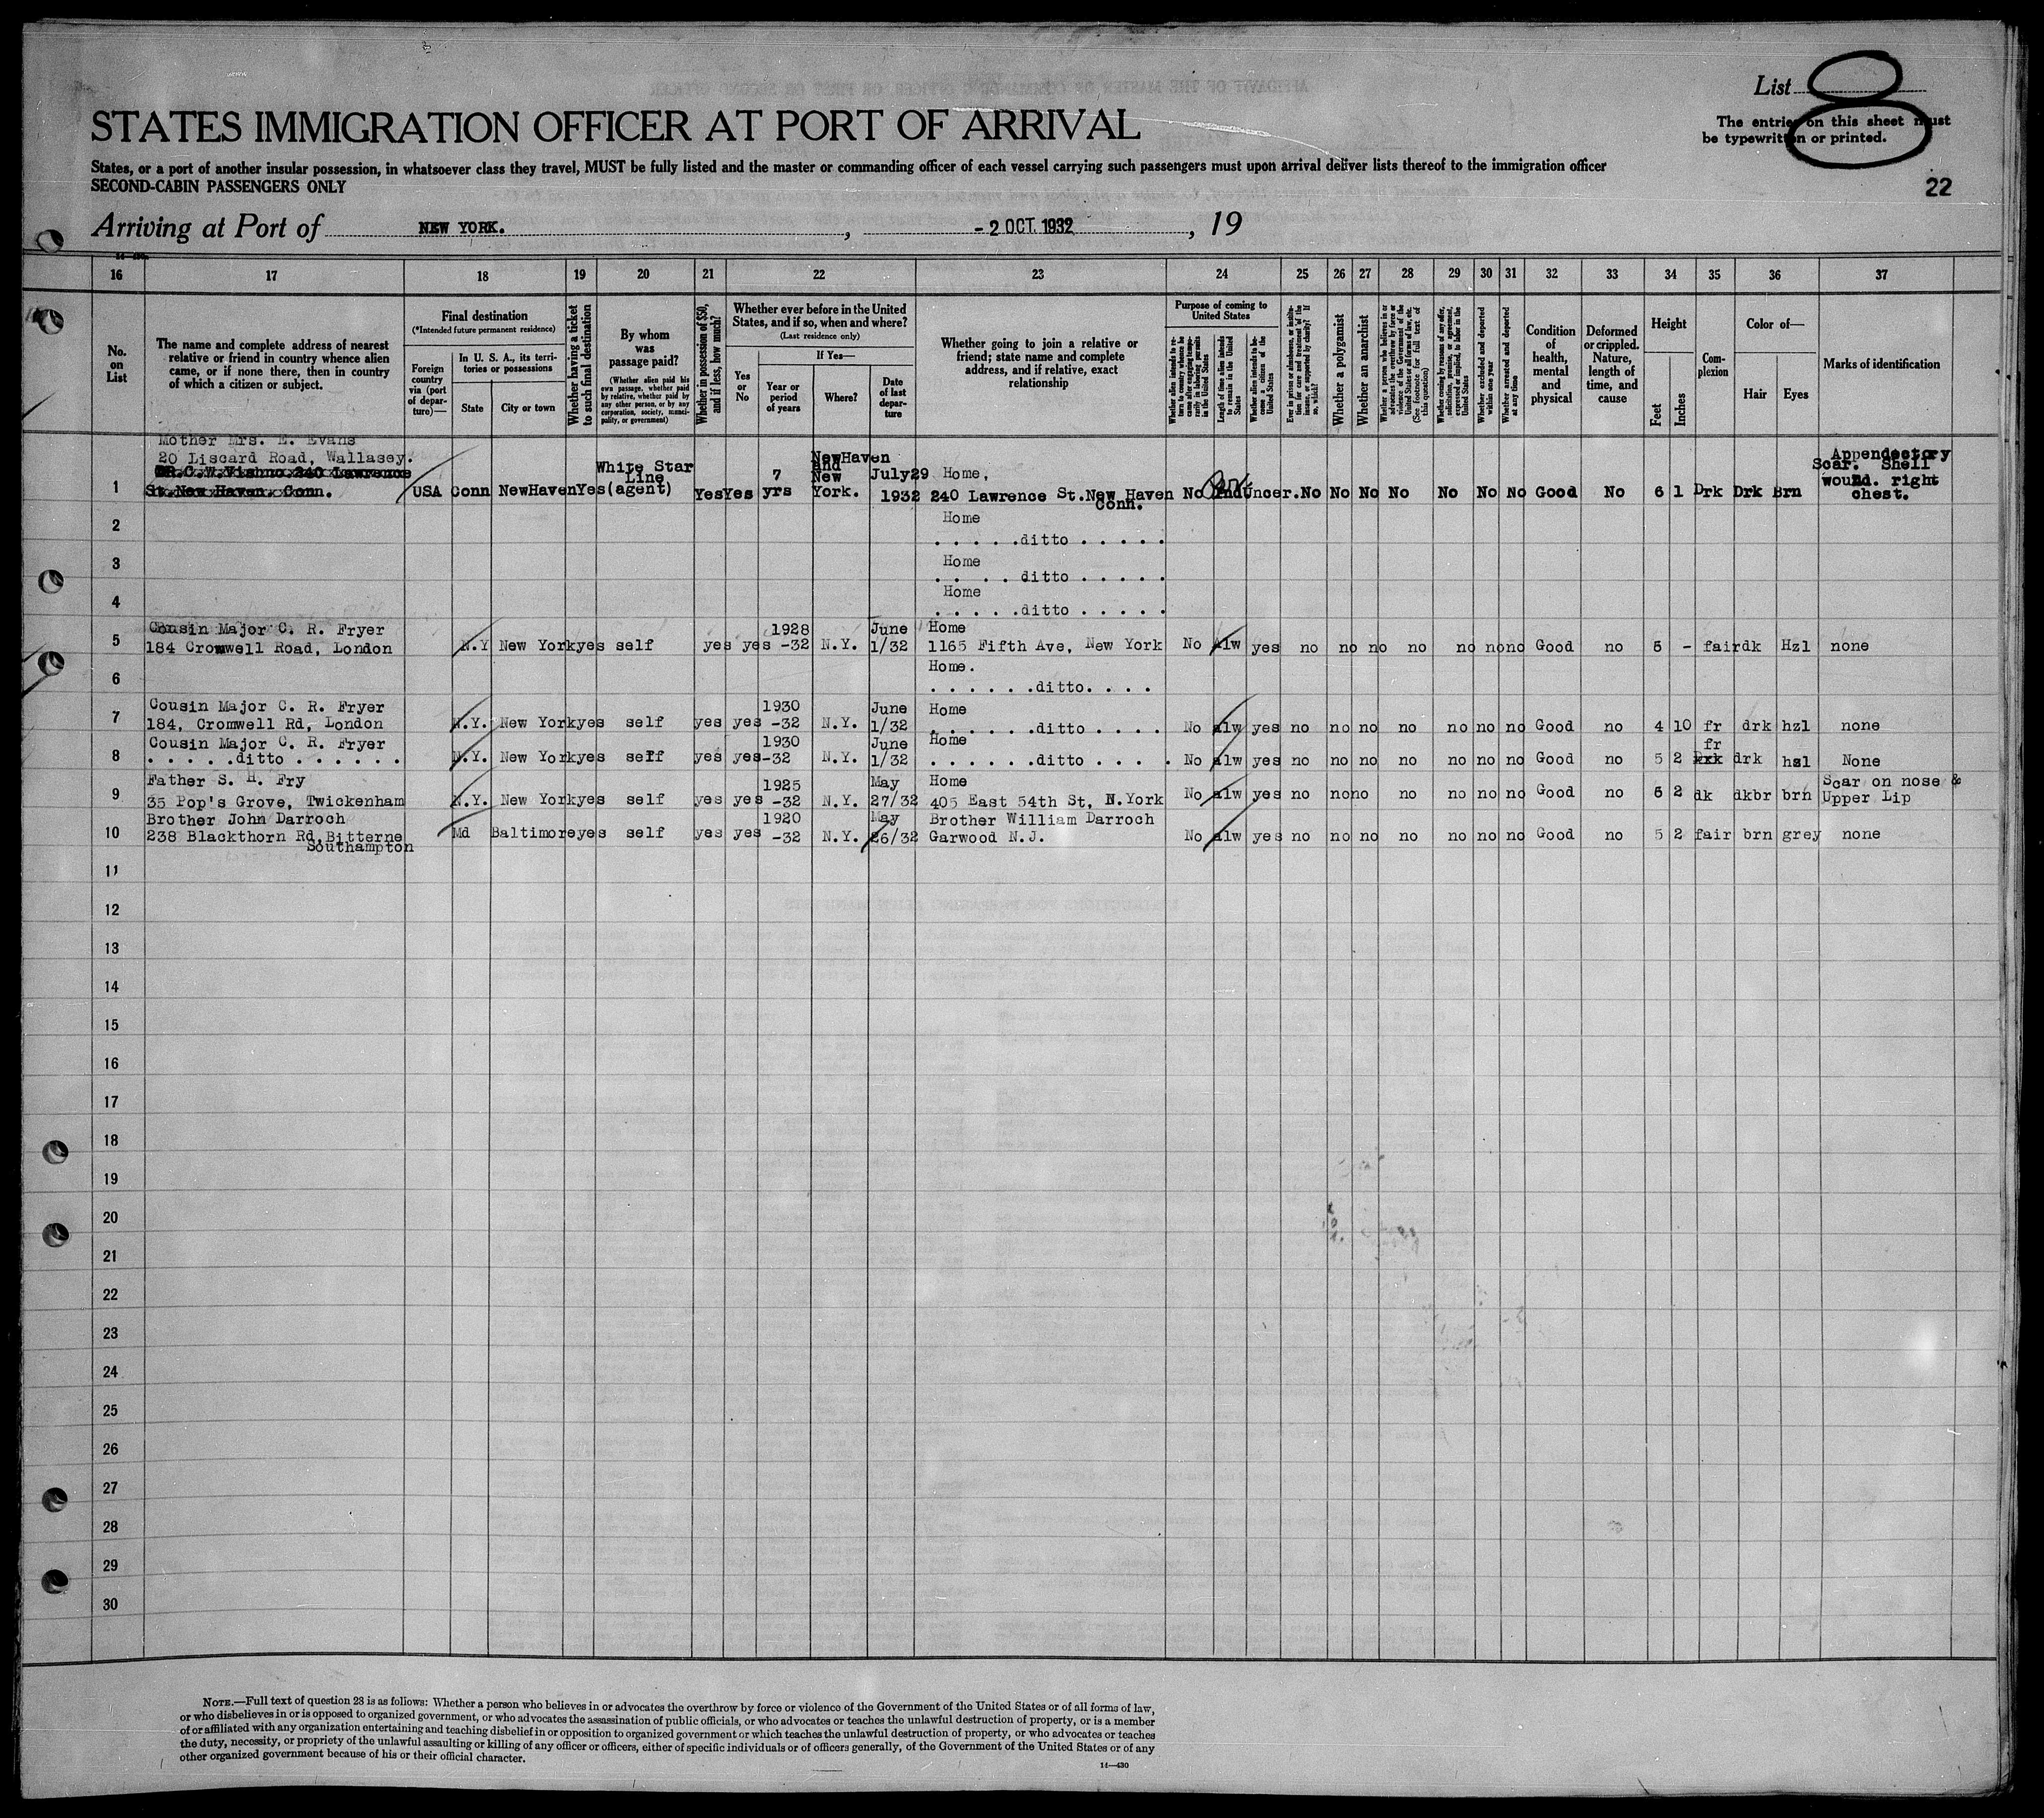 List
STATES IMMIGRATION OFFICER AT PORT OF ARRIVAL
The entries on this sheet must
be typewritten or printed.
States, or a port of another insular possession, in whatsoever class they travel, MUST be fully listed and the master or commanding officer of each vessel carrying such passengers must upon arrival deliver lists thereof to the immigration officer
SECOND-CABIN PASSENGERS ONLY
22
Arriving at Port of NEW YORK. , - 2 OCT. 1932 , 19
16 17 18 19 20 21 22 23 24 25 26 27 28 29 30 31 32 33 34 35 36 37
No. on List
The name and complete address of nearest relative or friend in country whence alien came, or if none there, then in country of which a citizen or subject.
Final destination
(*Intended future permanent residence)
Foreign country via (port of departure)—
In U. S. A., its territories or possessions
State
City or town
Whether having a ticket to such final destination
By whom was passage paid?
(Whether alien paid his own passage, whether paid by relative, whether paid by any other person, or by any corporation, society, municipality, or government)
Whether in possession of $50, and if less, how much?
Whether ever before in the United States, and if so, when and where?
(Last residence only)
Yes or No
If Yes—
Year or period of years
Where?
Date of last departure
Whether going to join a relative or friend; state name and complete address, and if relative, exact relationship
Purpose of coming to United States
Whether alien intends to return to country whence he came after engaging temporarily in laboring pursuits in the United States
Length of time alien intends to remain in the United States
Whether alien intends to become a citizen of the United States
Ever in prison or almshouse, or institution for care and treatment of the insane, or supported by charity? If so, which?
Whether a polygamist
Whether an anarchist
Whether a person who believes in or advocates the overthrow by force or violence of the Government of the United States or all forms of law, etc. (See footnote for full text of this question)
Whether coming by reason of any offer, solicitation, promise, or agreement, expressed or implied, to labor in the United States
Whether excluded and deported within one year
Whether arrested and deported at any time
Condition of health, mental and physical
Deformed or crippled. Nature, length of time, and cause
Height
Feet
Inches
Complexion
Color of—
Hair
Eyes
Marks of identification
Mother Mrs. E. Evans
20 Liscard Road, Wallasey.
C. W. Vishno 240 Lawrence
St. New Haven. Conn.
1 USA Conn NewHaven Yes White Star Line (agent) Yes Yes 7 yrs NewHaven and New York. July29 1932 Home, 240 Lawrence St. New Haven Conn. No Ind Uncer. No No No No No No No Good No 6 1 Drk Drk Brn Appendectory Scar. Shell wound. right chest.
2 Home
. . . . .ditto . . . . .
3 Home
. . . . ditto . . . . .
4 Home
. . . . .ditto . . . . .
5 Cousin Major C. R. Fryer
184 Cromwell Road, London N.Y New York yes self yes yes 1928 -32 N.Y. June 1/32 Home 1165 Fifth Ave, New York No alw yes no no no no no no no Good no 5 - fair dk Hzl none
6 Home.
. . . . . .ditto. . . .
7 Cousin Major C. R. Fryer
184, Cromwell Rd, London N.Y. New York yes self yes yes 1930 -32 N.Y. June 1/32 Home . . . . . .ditto . . . . No alw yes no no no no no no no Good no 4 10 fr drk hzl none
8 Cousin Major C. R. Fryer
. . . . .ditto . . . . . . N.Y. New York yes self yes yes 1930 -32 N.Y. June 1/32 Home . . . . . .ditto . . . . . No alw yes no no no no no no no Good no 5 2 fr drk hzl None
9 Father S. H. Fry
35 Pop's Grove, Twickenham N.Y. New York yes self yes yes 1925 -32 N.Y. May 27/32 Home 405 East 54th St, N.York No alw yes no no no no no no no Good no 5 2 dk dkbr brn Scar on nose & Upper Lip
10 Brother John Darroch
238 Blackthorn Rd, Bitterne Southampton Md Baltimore yes self yes yes 1920 -32 N.Y. May 26/32 Brother William Darroch Garwood N.J. No alw yes no no no no no no no Good no 5 2 fair brn grey none
11
12
13
14
15
16
17
18
19
20
21
22
23
24
25
26
27
28
29
30
NOTE.—Full text of question 28 is as follows: Whether a person who believes in or advocates the overthrow by force or violence of the Government of the United States or of all forms of law,
or who disbelieves in or is opposed to organized government, or who advocates the assassination of public officials, or who advocates or teaches the unlawful destruction of property, or is a member
of or affiliated with any organization entertaining and teaching disbelief in or opposition to organized government or which teaches the unlawful destruction of property, or who advocates or teaches
the duty, necessity, or propriety of the unlawful assaulting or killing of any officer or officers, either of specific individuals or of officers generally, of the Government of the United States or of any
other organized government because of his or their official character.
14—430